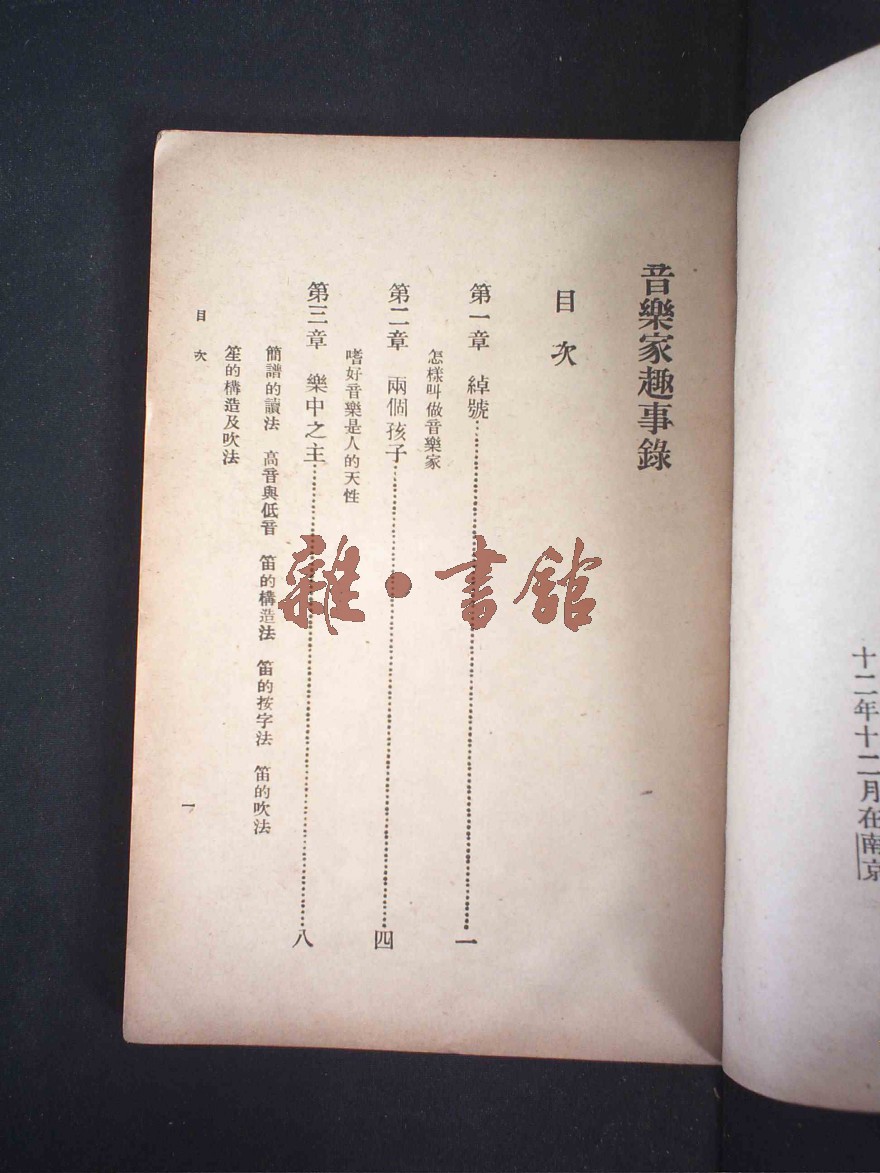 十二年十二月在南京
音樂家趣事錄
目次
第一章　綽號……一
怎樣叫做音樂家
第二章　兩個孩子……四
嗜好音樂是人的天性
第三章　樂中之主……八
簡譜的讀法　高音與低音　笛的構造法　笛的按字法　笛的吹法
笙的構造及吹法
目次
一
雜·書館